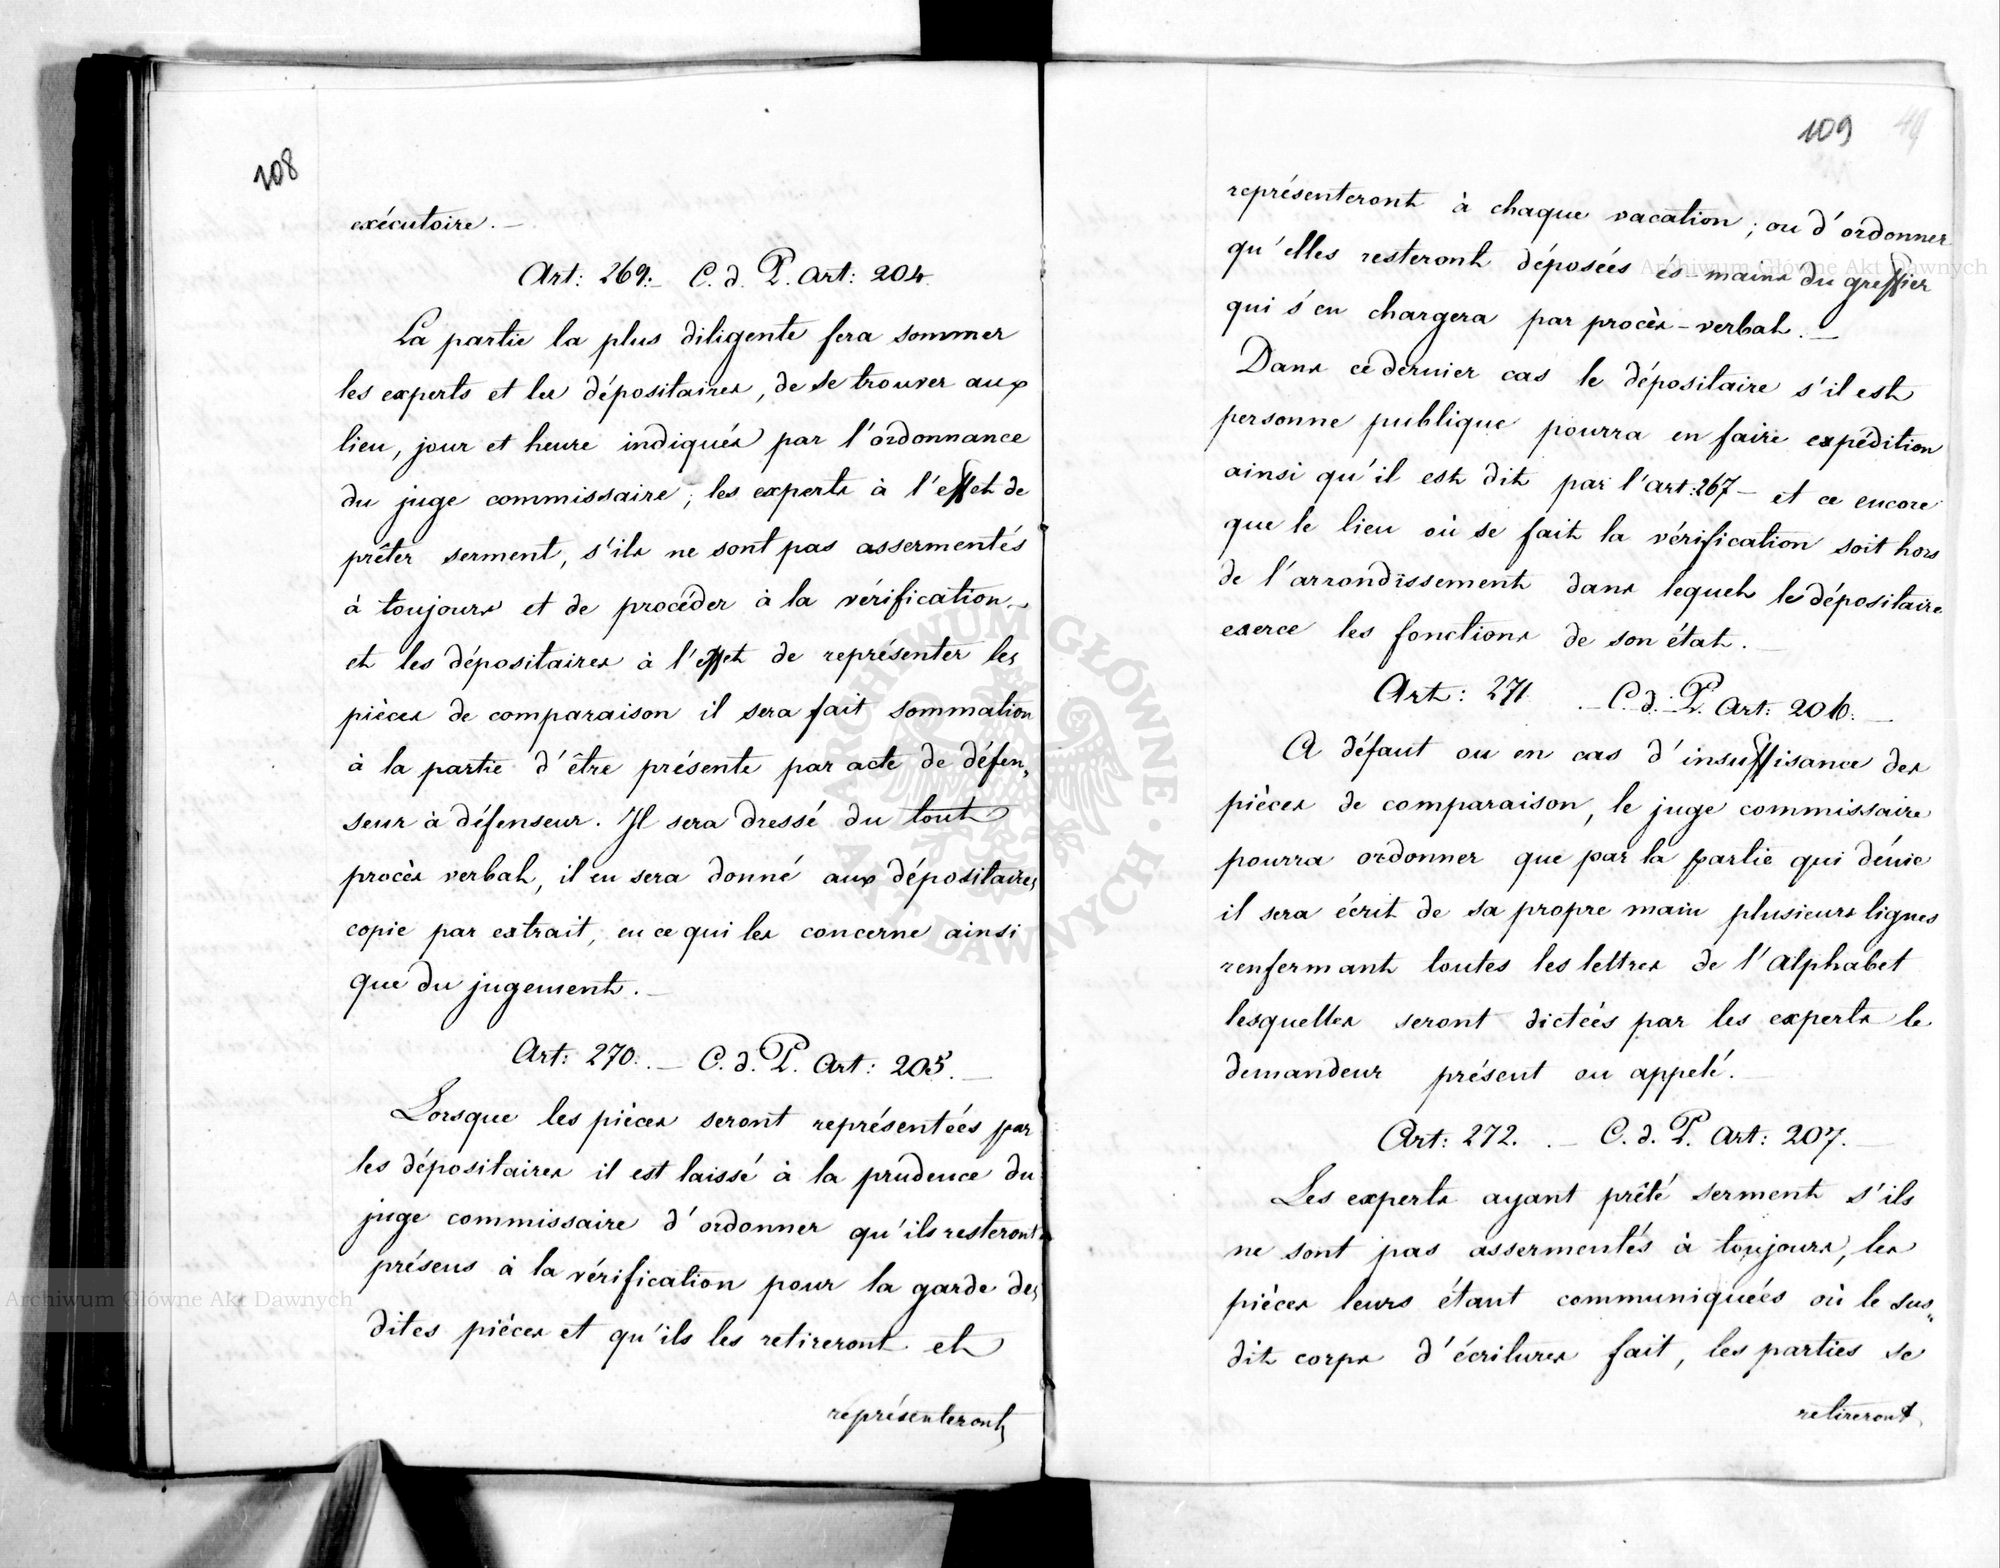 108
exécutoire. —
Art: 269. — C. d. P. Art: 204.
La partie la plus diligente fera sommer
les experts et les dépositaires, de se trouver aux
lieu, jour et heure indiqués par l'ordonnance
du juge commissaire; les experts à l'effet de
prêter serment, s'ils ne sont pas assermentés
à toujours et de procéder à la vérification —
et les dépositaires à l'effet de représenter les
pièces de comparaison il sera fait sommation
à la partie d'être présente par acte de défen„
seur à défenseur. Il sera dressé du tout
procès verbal, il en sera donné aux dépositaires
copie par extrait, en ce qui les concerne ainsi
que du jugement. —
Art: 270. — C. d. P. Art: 205. —
Lorsque les pièces seront représentées par
les dépositaires il est laissé à la prudence du
juge commissaire d'ordonner qu'ils resteront
présens à la vérification pour la garde des
dites pièces et qu'ils les retireront et
représenteront
109
représenteront à chaque vacation; ou d'ordonner
qu'elles resteront déposées és-mains du greffier
qui s'en chargera par procès-verbal. —
Dans ce dernier cas le dépositaire s'il est
personne publique pourra en faire expédition
ainsi qu'il est dit par l'art: 267 — et ce encore
que le lieu où se fait la vérification soit hors
de l'arrondissement dans lequel le dépositaire
exerce les fonctions de son état. —
Art: 271. — C. d. P. Art: 206. —
A défaut ou en cas d'insuffisance des
pièces de comparaison, le juge commissaire
pourra ordonner que par la partie qui dénie
il sera écrit de sa propre main plusieurs lignes
renfermant toutes les lettres de l'Alphabet
lesquelles seront dictées par les experts le
demandeur présent ou appelé. —
Art: 272. — C. d. P. Art: 207. —
Les experts ayant prêté serment s'ils
ne sont pas assermentés à toujours, les
pièces leurs étant communiquées où le sus„
dit corps d'écritures fait, les parties se
retireront
Archiwum Główne Akt Dawnych
Archiwum Główne Akt Dawnych
ARCHIWUM GŁÓWNE · AKT DAWNYCH ·